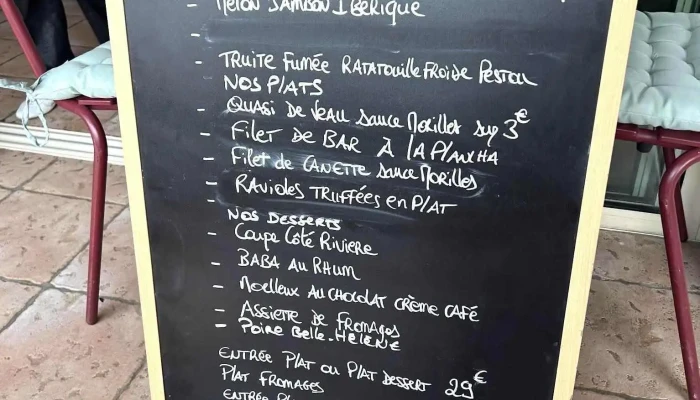 - Melon JAMBON IBÉRIQUE
-
- TRUITE FUMÉE RATATOUILLE FROIDE PESTOU
NOS PLATS
- QUASI DE VEAU SAUCE MORILLES SUP 3€
- FILET DE BAR À LA PLANCHA
- FILET DE CANETTE SAUCE MORILLES
- RAVIOLES TRUFFÉES EN PLAT
-
NOS DESSERTS
- COUPE CÔTÉ RIVIERE
- BABA AU RHUM
- MOELLEUX AU CHOCOLAT CRÈME CAFÉ
- ASSIETTE DE FROMAGES
- POIRE BELLE-HELENE
ENTRÉE PLAT OU PLAT DESSERT 29€
PLAT FROMAGES
ENTRÉE